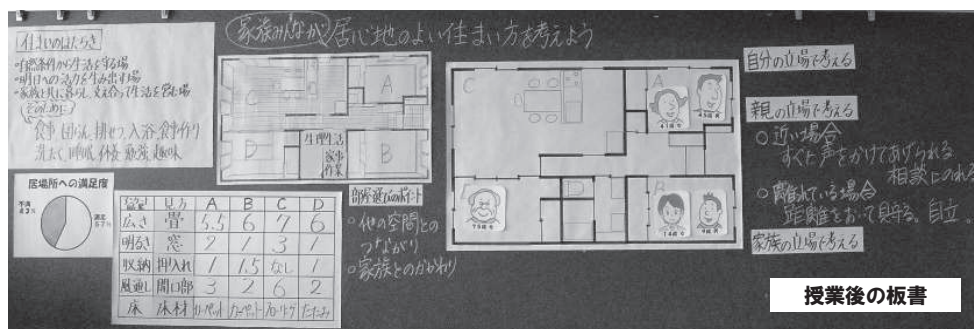 住まいのはたらき
・自然条件から生活を守る場
・明日への活力を生み出す場
・家族と共に暮らし、支え合って生活を営む場
そのために
食事 団らん 排せつ 入浴 食事作り
洗たく 睡眠 休養 勉強 趣味
居場所への満足度
不満
43%
満足
57%
見方 A B C D
広さ 畳 5.5 6 7 6
明るさ 窓 2 1 3 1
収納 押入れ 1 1.5 なし 1
風通し 開口部 3 2 6 2
床 床材 カーペット カーペット フローリング たたみ
家族みんなが居心地のよい住まい方を考えよう
C
A
D
生理生活
家事
作業
B
部屋選びのポイント
○他の空間との
つながり
○家族とのかかわり
C
A
B
自分の立場で考える
親の立場で考える
○近い場合
すぐに声をかけてあげられる
相談にのれる
○離れている場合
距離をおいて見守る。自立。
家族の立場で考える
授業後の板書